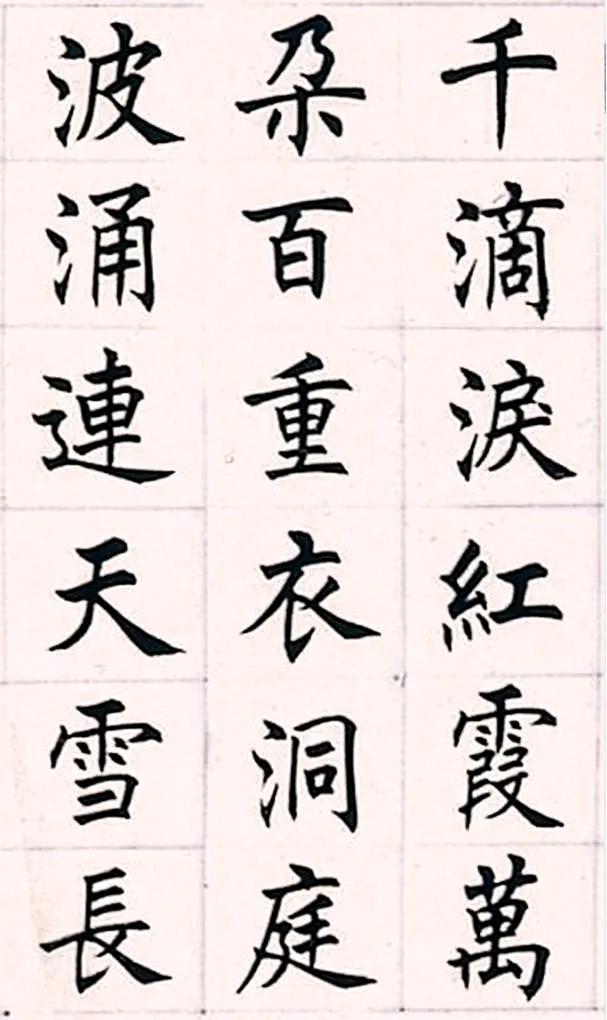 千滴淚紅霞萬
朶百重衣洞庭
波涌連天雪長